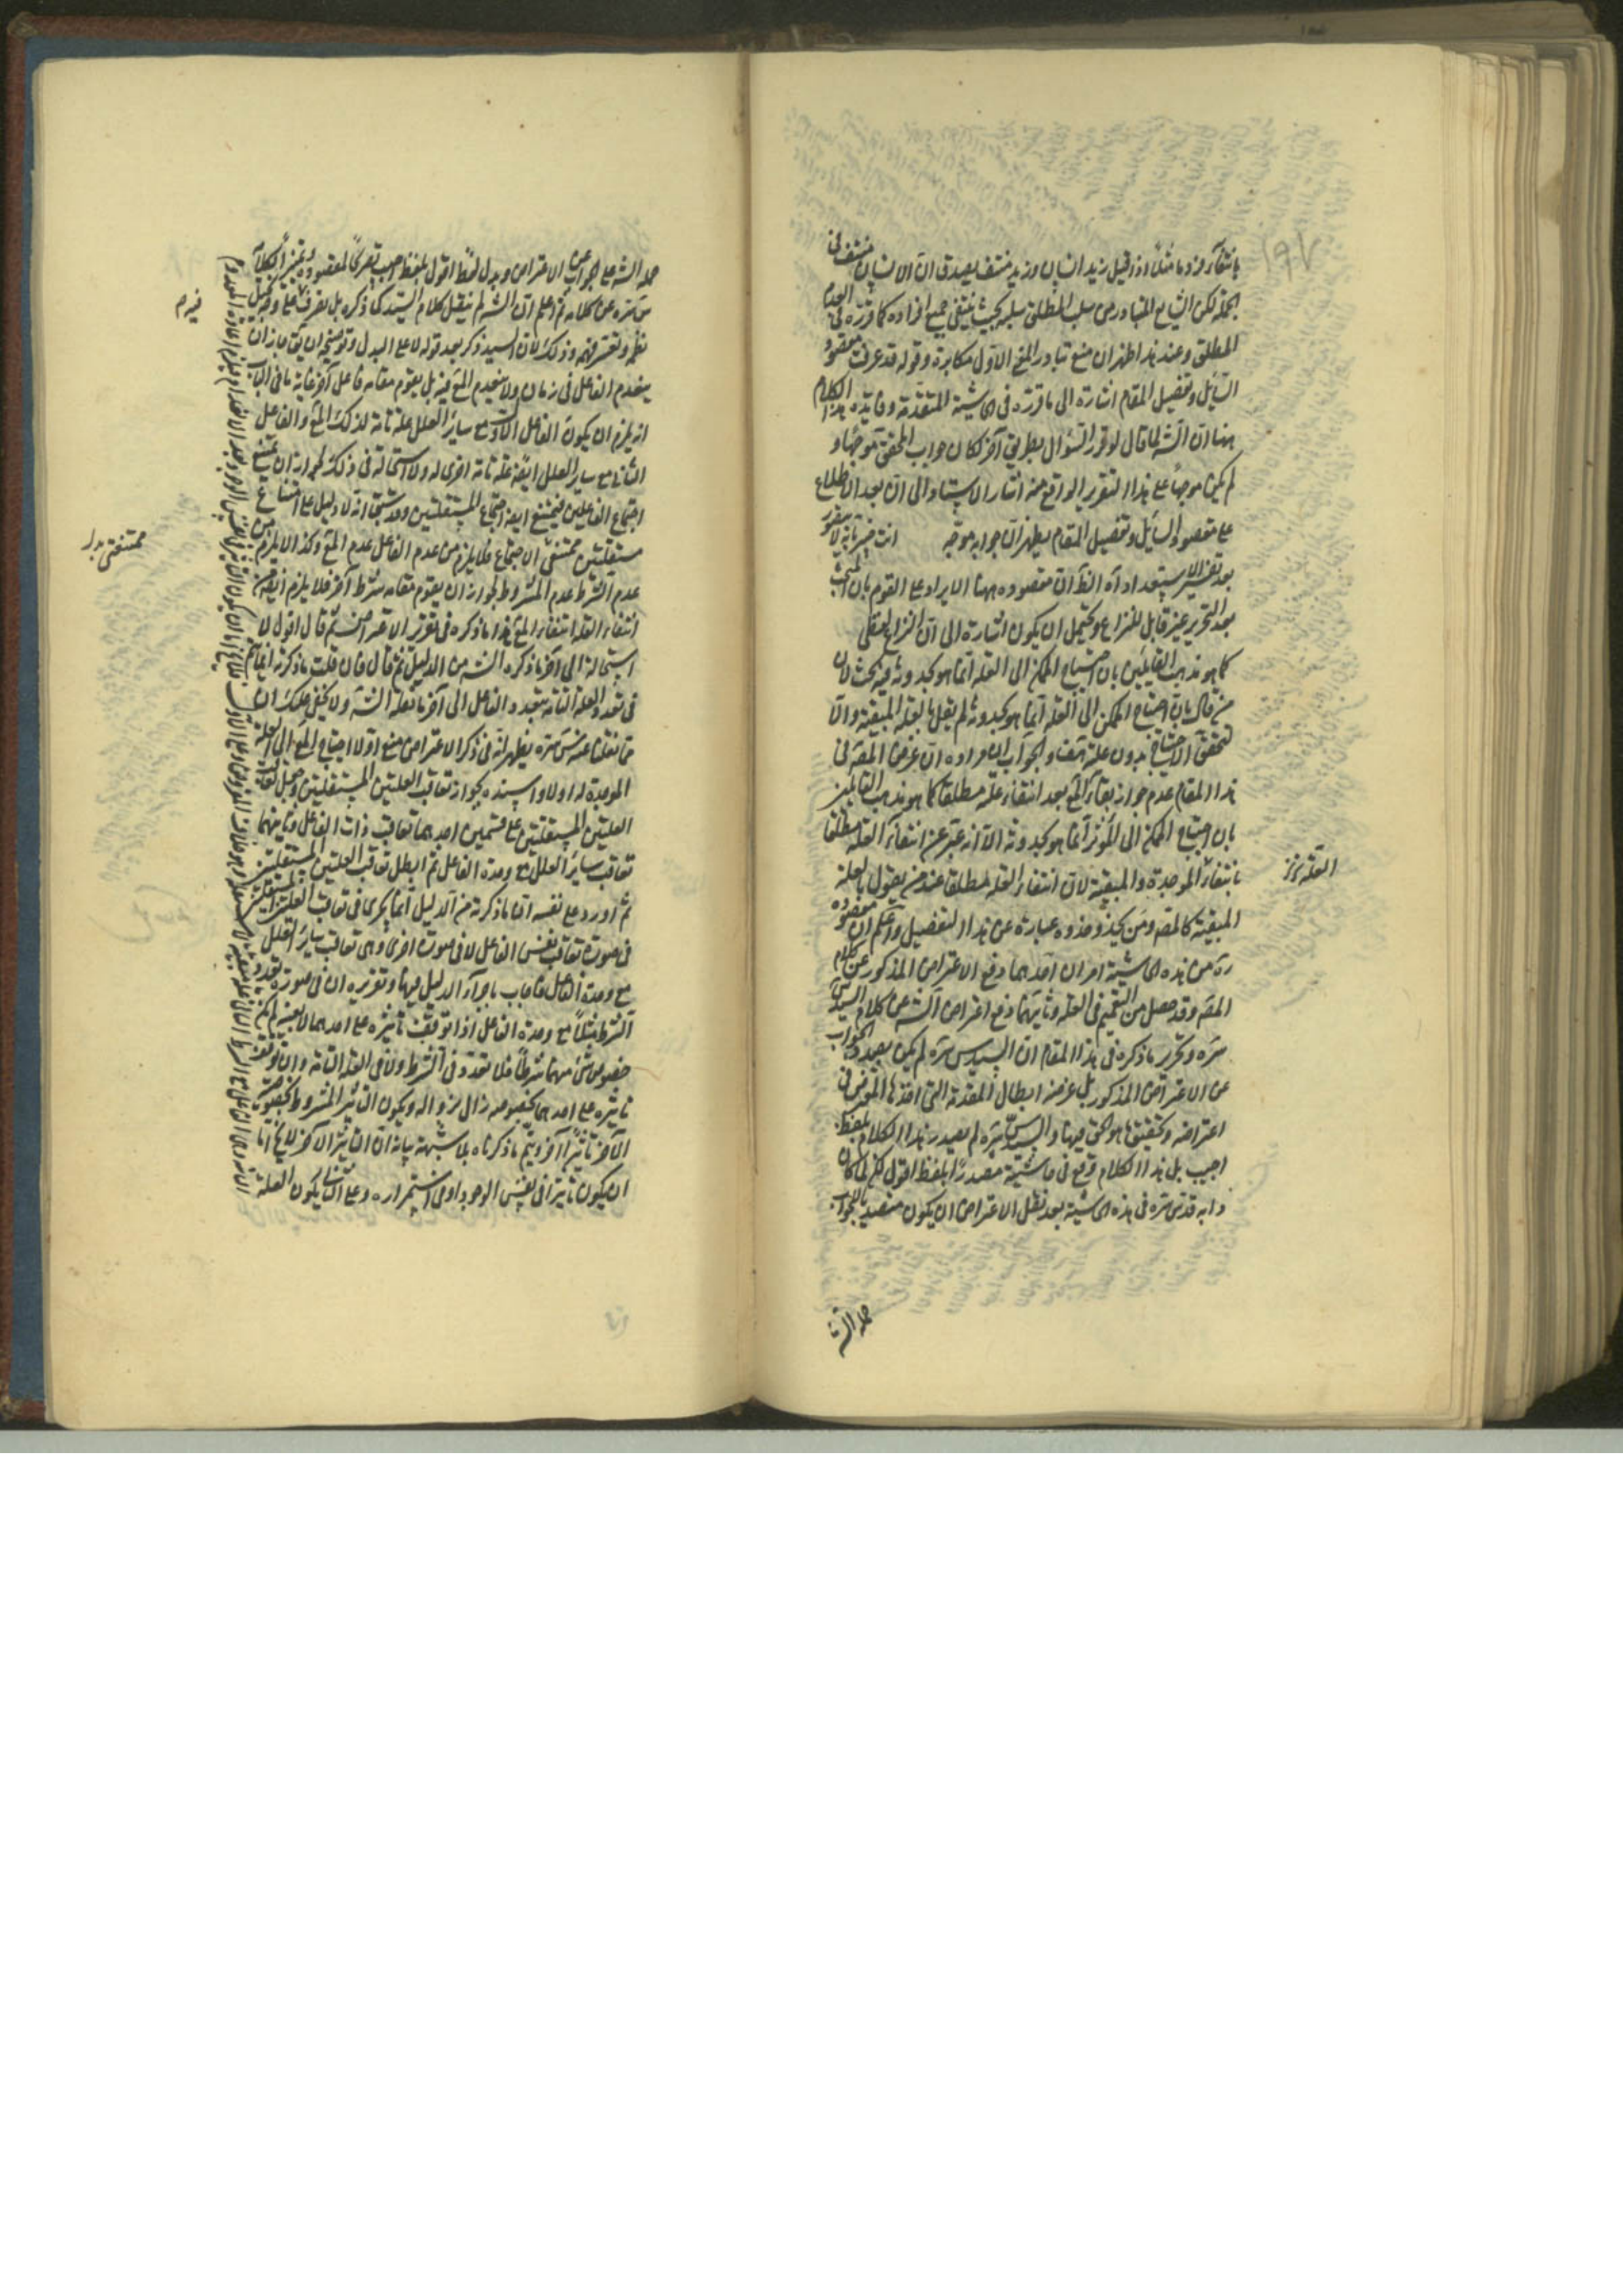 بانتفاء فرد ما مثلا اذا قيل زيد انسان وزيد منتف يصدق ان الانسان منتف في
الجملة لكن الشايع المتبادر من سلب المطلق سلبه بحيث ينتفي جميع افراده كما قرره في العدم
المطلق وعند هذا اظهر ان منع تبادر المعنى الاول مكابرة وقوله قد عرفت مقصود
السائل وتفصيل المقام اشارة الى ما قرره في الحاشية المتقدمة وفايدة هذا الكلام
هنا ان الشه لما قال لو قرر السؤال بطريق آخر لكان جواب المحقق موجها و
لم يكن موجها على هذا التقرير الواقع منه اشار الاستاد الى ان بعد الاطلاع
على مقصود السائل وتفصيل المقام يظهر ان جوابه موجه انت خبير بانه لا يتصور
بعد تفسير الاستعداد اه الظ ان مقصوده ههنا الايراد على القوم بان المبحث
بعد التحرير غير قابل للنزاع ويحتمل ان يكون اشارة الى ان النزاع لفظي
كما هو مذهب القايلين بان احتياج الممكن الى العلة انما هو لحدوثه فيه بحث لان
من قال بان احتياج الممكن الى العلة انما هو لحدوثه لم يقل بالعلة المبقية والا
لتحقق الاحتياج بدون علة هف والجواب ان مراده ان غرض المصه في
هذا المقام عدم جواز بقاء المع بعد انتفاء علته مطلقا كما هو مذهب القائلين
بان احتياج الممكن الى المؤثر انما هو لحدوثه الا انه عبر عن انتفاء العلة مطلقا
بانتفاء الموجدة والمبقية لان انتفاء العلة مطلقا عند من يقول بالعلة
المبقية كالمصه ومن يحذو حذوه عبارة عن هذا التفصيل واعلم ان مقصوده
ره من هذه الحاشية امران احدهما دفع الاعتراض المذكور عن كلام
المصه وقد حصل من التعميم في العلة وثانيهما دفع اعتراض الشه عن كلام السيد قدس
سره وتحرير ما ذكره في هذا المقام ان السيد قدس سره لم يكن بصدد الجواب
عن الاعتراض المذكور بل غرضه ابطال المقدمة التي اخذها المعترض في
اعتراضه وتحقيق ما هو الحق فيها والسيد قدس سره لم يصدر هذا الكلام بلفظ
اجيب بل هذا الكلام وقع في حاشيته مصدرا بلفظ اقول لكن لما كان
دابه قدس سره في هذه الحاشية بعد نقل الاعتراض ان يكون متصديا للجواب
حمله الشه
العلة
حمله الشه على الجواب عن الاعتراض وبدل لفظ اقول بلفظ اجيب تصريحا لمقصوده وتميزا لكلامه
س سره عن كلامه ثم اعلم ان الشه لم ينقل كلام السيد كما ذكره بل تصرف فيه على وجه يخل
نظمه ويعسر فهمه وذلك لان السيد ذكر بعد قوله لا على البدل وتوضيحه ان يق جاز ان
ينعدم الفاعل في زمان ولا ينعدم المع فيه بل يقوم مقامه فاعل آخر غاية ما في الباب
انه يلزم ان يكون الفاعل الاول مع ساير العلل علة تامة لذلك المع والفاعل
الثاني مع ساير العلل ايضا علة تامة اخرى له ولا استحالة في ذلك لجواز ان يمتنع
اجتماع الفاعلين فيمتنع ايضا اجتماع المستقلتين وقد سبق انه لا دليل على امتناع
مستقلتين ممتنعتي الاجتماع فلا يلزم من عدم الفاعل عدم المع وكذا لا يلزم من
عدم الشرط عدم المشروط لجواز ان يقوم مقامه شرط آخر فلا يلزم ايضا من
انتفاء العلة انتفاء المع هذا ما ذكره في تقرير الاعتراض ثم قال اقول لا
استحالة الى آخر ما ذكره الشه من الدليل ثم قال فان قلت ما ذكرته انما يتم
في تعدد العلة التامة بتعدد الفاعل الى آخر ما نقله الشه ولا يخفى عليك ان
ما نقلنا عنه س سره يظهر انه في ذكر الاعتراض منع اولا احتياج المع الى العلة
الموجدة له اولا واسنده بجواز تعاقب العلتين المستقلتين وجعل تعاقب
العلتين المستقلتين على قسمين احدهما تعاقب ذات الفاعل وثانيهما
تعاقب ساير العلل مع وحدة الفاعل ثم ابطل تعاقب العلتين المستقلتين
ثم اورد على نفسه ان ما ذكرته من الدليل انما يجري في تعاقب العلتين المستقلتين
في صورة تعاقب نفس الفاعل لا في صورة اخرى وهي تعاقب ساير العلل
مع وحدة الفاعل فاجاب باجراء الدليل فيها وتقريره ان في صورة تعدد
الشرط مثلا مع وحدة الفاعل اذا توقف تاثيره على احدهما لا بعينه لم يكن
خصوص شئ منهما شرطا فلا تعدد في الشرط ولا في العلة التامة وان توقف
تاثيره على احدهما بخصوصه زال بزواله ويكون التاثير المشروط بخصوصية
الآخر تاثيرا آخر ويتم ما ذكرناه بلا شبهة بيانه ان التاثير الآخر لا يخ اما
ان يكون تاثيرا في نفس الوجود او في استمراره وعلى الثاني يكون العلة
فيه م
ممتنعتي بدل